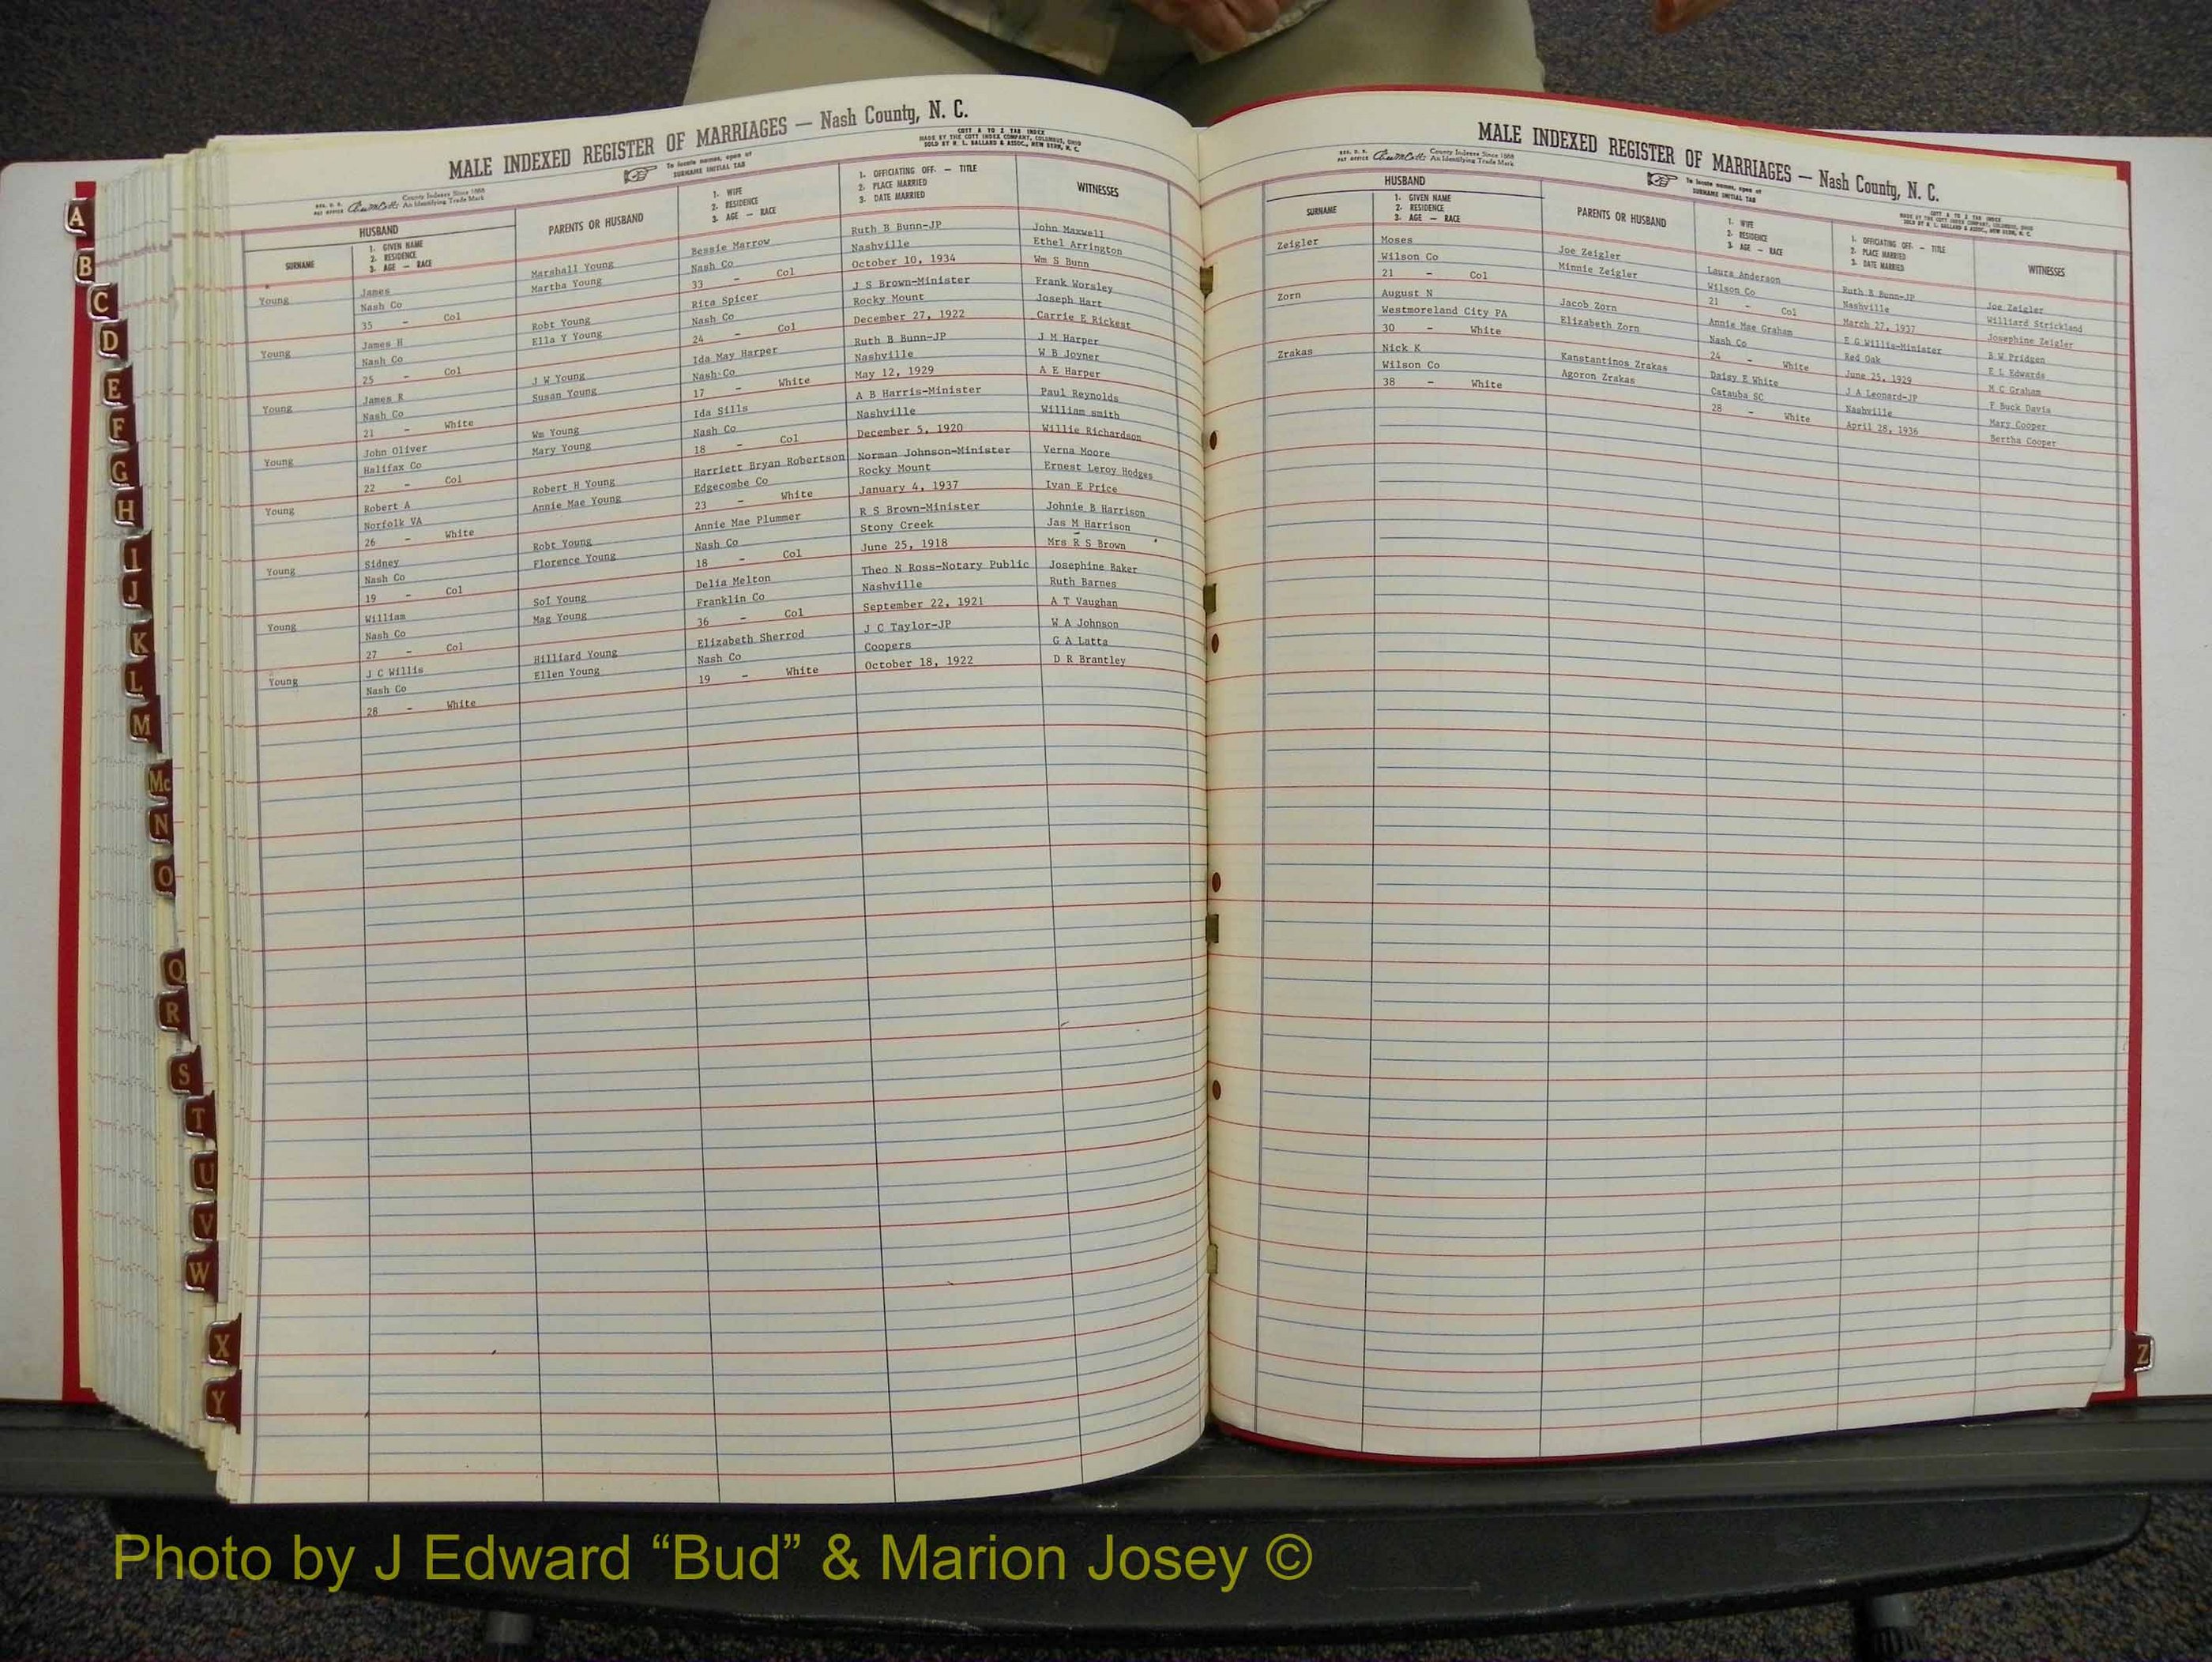 MALE INDEXED REGISTER OF MARRIAGES — Nash County, N. C.
COTT A TO Z TAB INDEX
MADE BY THE COTT INDEX COMPANY, COLUMBUS, OHIO
SOLD BY R. L. BALLARD & ASSOC., NEW BERN, N. C.
County Indexes Since 1888
An Identifying Trade Mark
To locate names, open at
SURNAME INITIAL TAB
HUSBAND
SURNAME
1. GIVEN NAME
2. RESIDENCE
3. AGE — RACE
PARENTS OR HUSBAND
1. WIFE
2. RESIDENCE
3. AGE — RACE
1. OFFICIATING OFF. — TITLE
2. PLACE MARRIED
3. DATE MARRIED
WITNESSES
Young James Marshall Young Bessie Marrow Ruth B Bunn-JP John Maxwell
Nash Co Martha Young Nash Co Nashville Ethel Arrington
35 - Col 33 - Col October 10, 1934 Wm S Bunn
Young James H Robt Young Rita Spicer J S Brown-Minister Frank Worsley
Nash Co Ella Y Young Nash Co Rocky Mount Joseph Hart
25 - Col 24 - Col December 27, 1922 Carrie E Rickest
Young James R J W Young Ida May Harper Ruth B Bunn-JP J M Harper
Nash Co Susan Young Nash Co Nashville W B Joyner
21 - White 17 - White May 12, 1929 A E Harper
Young John Oliver Wm Young Ida Sills A B Harris-Minister Paul Reynolds
Halifax Co Mary Young Nash Co Nashville William smith
22 - Col 18 - Col December 5, 1920 Willie Richardson
Young Robert A Robert H Young Harriett Bryan Robertson Norman Johnson-Minister Verna Moore
Norfolk VA Annie Mae Young Edgecombe Co Rocky Mount Ernest Leroy Hodges
26 - White 23 - White January 4, 1937 Ivan E Price
Young Sidney Robt Young Annie Mae Plummer R S Brown-Minister Johnie B Harrison
Nash Co Florence Young Nash Co Stony Creek Jas M Harrison
19 - Col 18 - Col June 25, 1918 Mrs R S Brown
Young William Sol Young Delia Melton Theo N Ross-Notary Public Josephine Baker
Nash Co Mag Young Franklin Co Nashville Ruth Barnes
27 - Col 36 - Col September 22, 1921 A T Vaughan
Young J C Willis Hilliard Young Elizabeth Sherrod J C Taylor-JP W A Johnson
Nash Co Ellen Young Nash Co Coopers G A Latta
28 - White 19 - White October 18, 1922 D R Brantley
A
B
C
D
E
F
G
H
I
J
K
L
M
Mc
N
O
Q
R
S
T
U
V
W
X
Y
MALE INDEXED REGISTER OF MARRIAGES — Nash County, N. C.
County Indexes Since 1888
An Identifying Trade Mark
To locate names, open at
SURNAME INITIAL TAB
COTT A TO Z TAB INDEX
MADE BY THE COTT INDEX COMPANY, COLUMBUS, OHIO
SOLD BY R. L. BALLARD & ASSOC., NEW BERN, N. C.
HUSBAND
SURNAME
1. GIVEN NAME
2. RESIDENCE
3. AGE — RACE
PARENTS OR HUSBAND
1. WIFE
2. RESIDENCE
3. AGE — RACE
1. OFFICIATING OFF. — TITLE
2. PLACE MARRIED
3. DATE MARRIED
WITNESSES
Zeigler Moses Joe Zeigler Laura Anderson Ruth B Bunn-JP Joe Zeigler
Wilson Co Minnie Zeigler Wilson Co Nashville Williard Strickland
21 - Col 21 - Col March 27, 1937 Josephine Zeigler
Zorn August N Jacob Zorn Annie Mae Graham E G Willis-Minister B W Pridgen
Westmoreland City PA Elizabeth Zorn Nash Co Red Oak E L Edwards
30 - White 24 - White June 25, 1929 M C Graham
Zrakas Nick K Kanstantinos Zrakas Daisy E White J A Leonard-JP F Buck Davis
Wilson Co Agoron Zrakas Catauba SC Nashville Mary Cooper
38 - White 28 - White April 28, 1936 Bertha Cooper
Z
Photo by J Edward “Bud” & Marion Josey ©